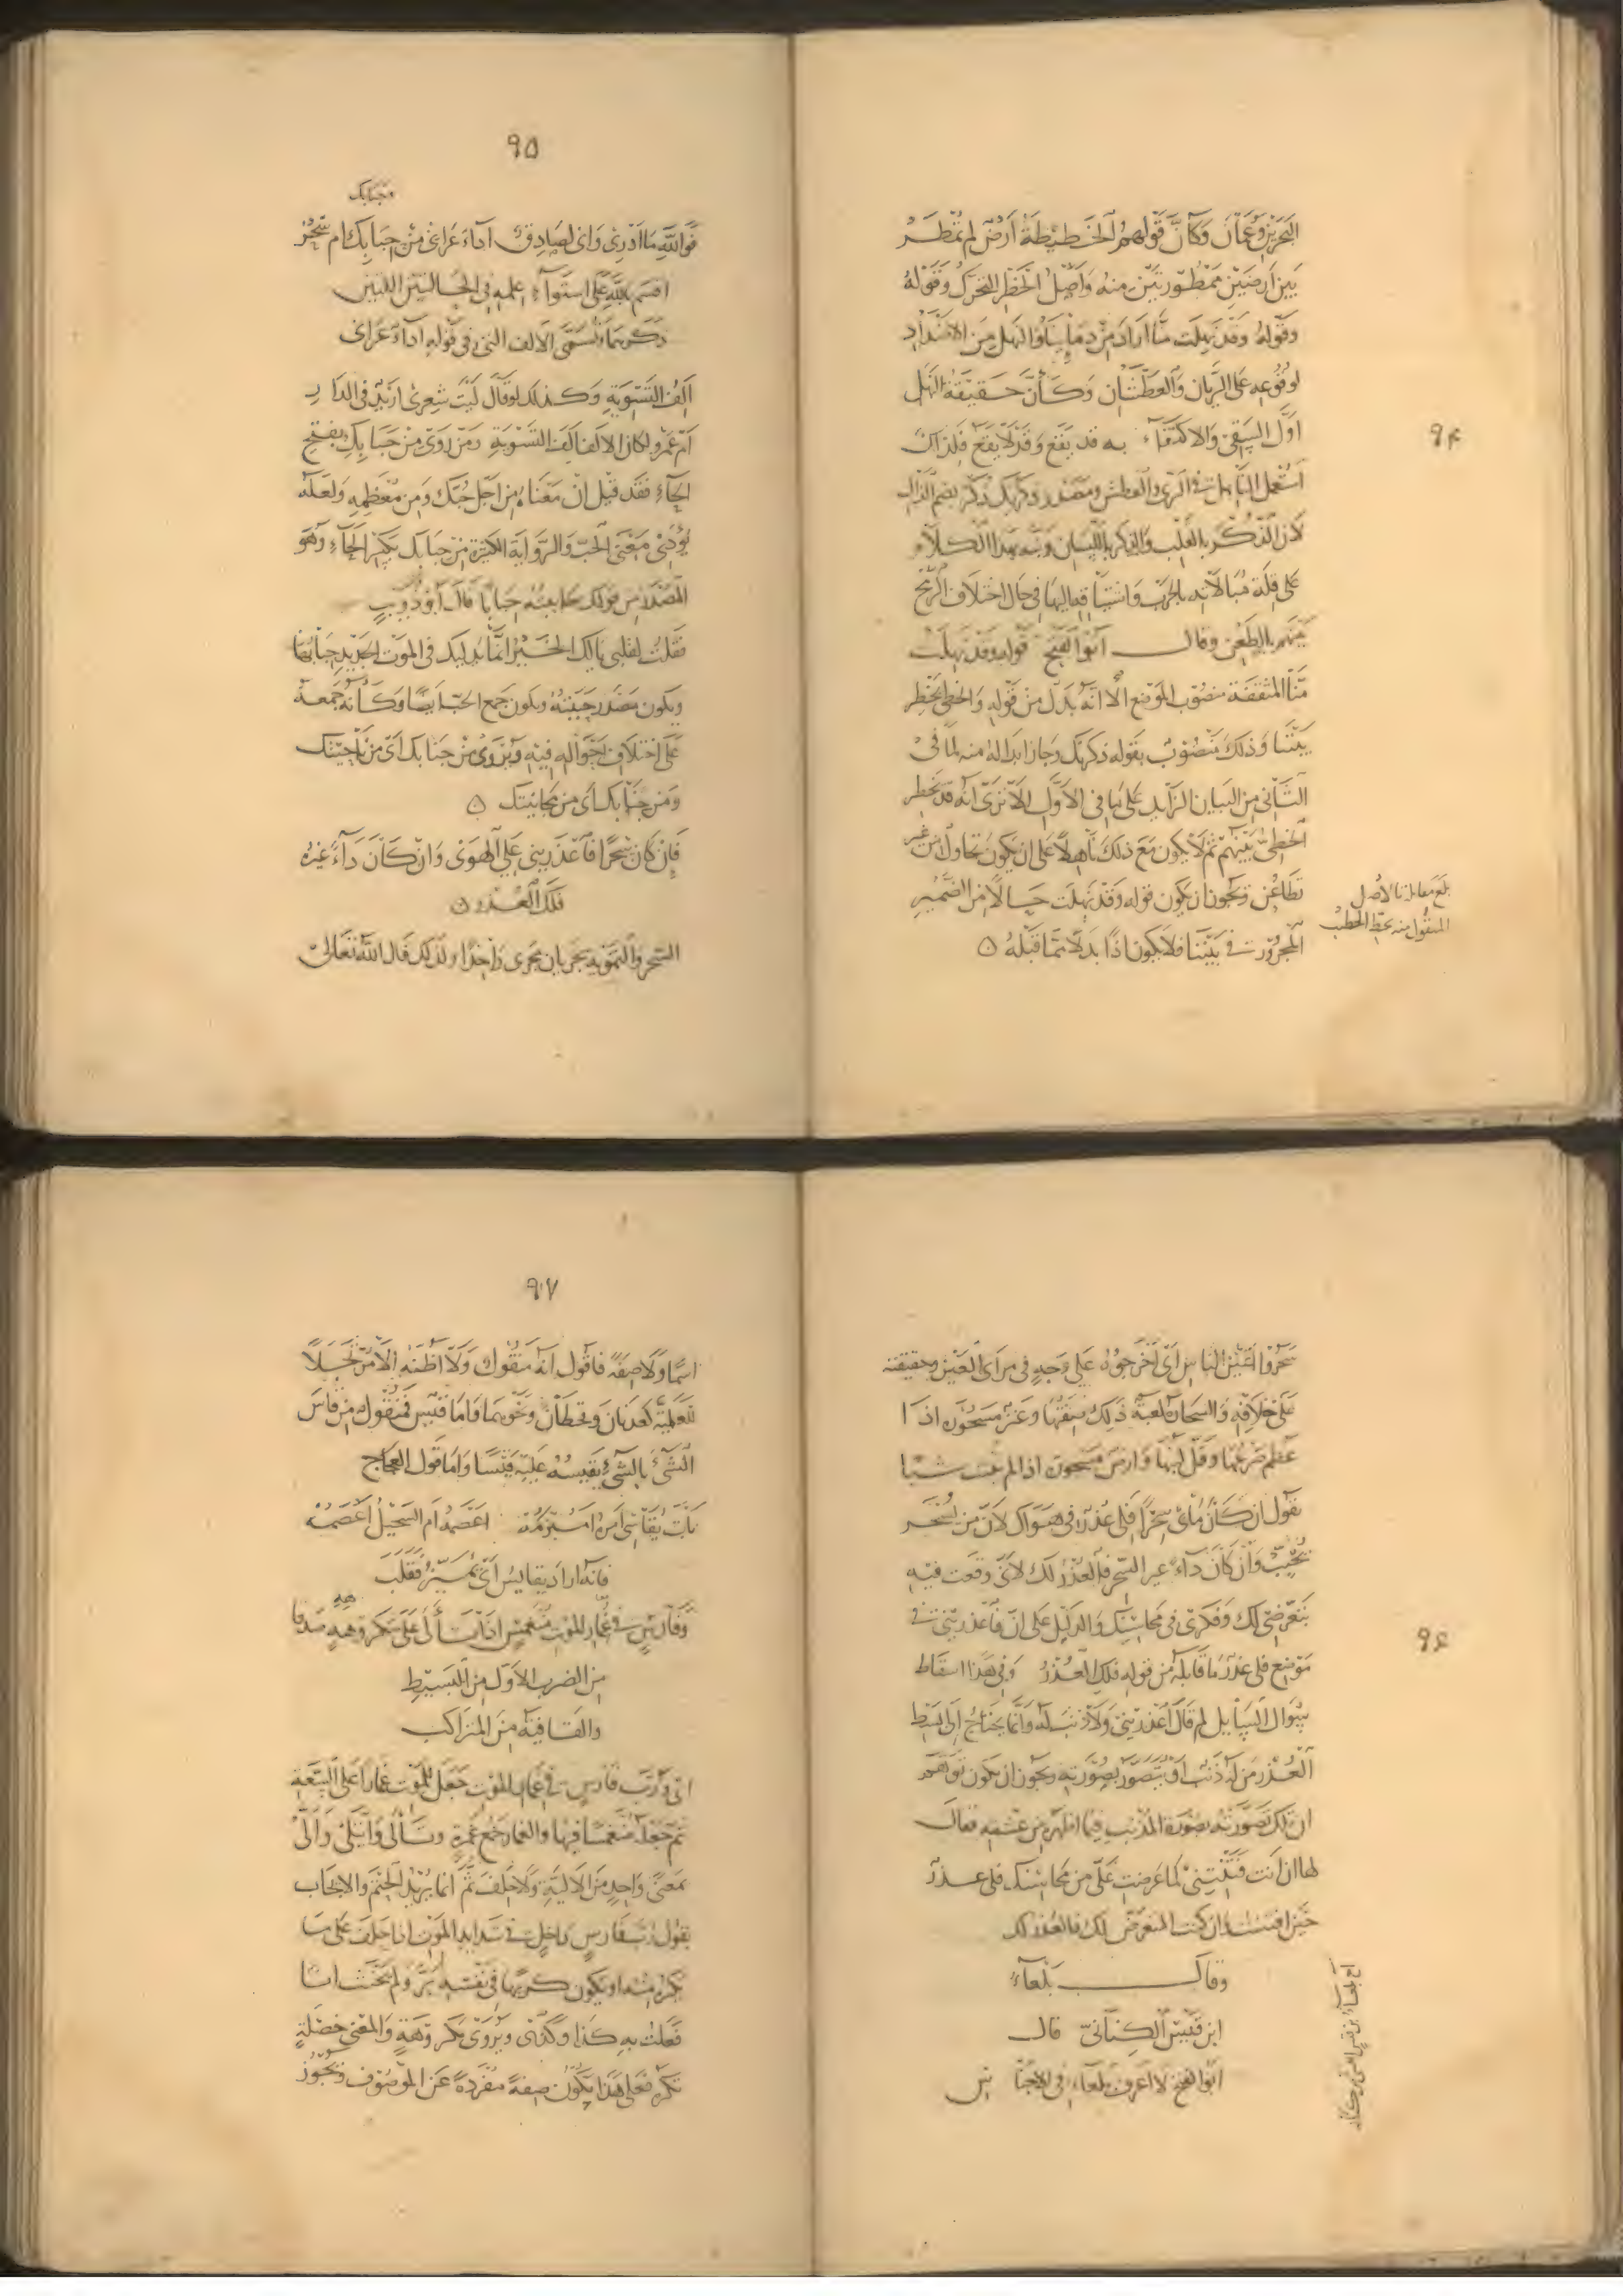 ٩٤
البحرين وعمان وكأن قولهم الخطيطة أرض لم تمطر
بين أرضين ممطورتين منه وأصل الخطر التحرك وقوله
وقوله وقد نهلت منا أراد من دمائنا والنهل من الأضداد
لوقوعه على الريان والعطشان وكأن حقيقة النهل
أول السقي والاكتفاء به قد يقع وقد لا يقع فلذلك
استعمل الناهل في الري والعطش ومصدر ذكرتك ذكر بضم الذال
لأن الذكر بالقلب والذكر باللسان ونبه بهذا الكلام
على قلة مبالاته بالحرب واشتياقه إليها في حال اختلاف الرمح
بينهم بالطعن وقال أبو الفتح قوله وقد نهلت
منا المثقفة منصوب الموضع ألا أنه بدل من قوله والخطي يخطر
بيننا وذلك منصوب بقوله ذكرتك وجاز ابداله منه لما في
الثاني من البيان الزائد على ما في الأول ألا ترى أنه قد يخطر
الخطي بينهم ثم لا يكون مع ذلك ناهلا على أن يكون تجاول من غير
تطاعن ويجوز أن يكون قوله وقد نهلت حالا من الضمير
المجرور في بيننا فلا يكون اذا بدلا مما قبله ۞
بلغ مقابلة بالأصل
المنقول منه بخط الخطيب
٩٥
جنابك
فوالله ما أدري واني لصادق أداء عراني من حبابك أم سحر
أقسم بالله على استواء علمه في الحالتين اللتين
ذكرهما وتسمى الألف التي في قوله أداء عراني
ألف التسوية وكذلك لو قال ليت شعري أزيد في الدار
أم عمرو لكان الألف ألف التسوية ومن روى من حبابك بفتح
الحاء فقد قيل إن معناه من أجل حبك ومن معظمه ولعله
يؤدي معنى الحب والرواية الكثيرة من حبابك بكسر الحاء وهو
المصدر من قولك حاببته حبابا قال أبو ذؤيب
فقلت لقلبي يا لك الخير إنما يدليك في الموت الجديد حبابها
ويكون مصدر حببته ويكون جمع الحب أيضا وكأنه جمعه
على اختلاف أحواله فيه ويروى من جنابك أي من ناحيتك
ومن جنابك أي من مجانبتك ۞
فإن كان سحرا فاعذريني على الهوى وان كان داء غيره
فلك العذر ۞
السحر والتمويه يجريان مجرى واحدا ولذلك قال الله تعالى
٩٦
سحروا أعين الناس أي أخرجوه على وجه في مرأى العين وحقيقته
على خلافه والسحارة لعبة ذلك صفتها وعنز مسحورة اذا
عظم ضرعها وقل لبنها وأرض مسحورة اذا لم تنبت شيئا
يقول ان كان ما بي سحرا فلي عذر في هواك لأن من يسحر
يحب وان كان داء غير السحر فالعذر لك لأني وقعت فيه
بتعرضي لك وفكري في محاسنك والدليل على أن فاعذريني في
موضع فلي عذر ما قابله من قوله فلك العذر وفي هذا اسقاط
سؤال السائل لم قال اعذريني ولا ذنب له وانما يحتاج إلى بسط
العذر من له ذنب أو يتصور بصورته ويجوز أن يكون توهم
ان تلك تصورته بصورة المذنب فيما أظهره من عشقه فقال
لها ان أنت فتنتني كما عرضت علي من محاسنك فلي عذر
حين افتتنت وان كنت المتعرض لك فالعذر لك
وقال بلعاء
ابن قيس الكناني قال
أبو الفتح لا أعرف بلعاء في الأجناس
٩٧
اسما ولا صفة فأقول انه منقول ولا أظنه إلا مرتجلا
للعلمية كعدنان وقحطان ونحوهما وأما قيس فمنقول من قاس
الشيء بالشيء يقيسه عليه قيسا وأما قول العجاج
بات يقاسي أمره أمبرمه أعصمه أم السحيل أعصمه
فانه أراد يقايس أي يميز فقلب
وفارس في غمار الموت منغمس إذا تألى على مكروهه صدقا
من الضرب الأول من البسيط
والقافية من المتراكب
أي ورب فارس في غمار الموت جعل للموت غمارا على السعة
ثم جعله منغمسا فيها والغمار جمع غمرة وتألى وائتلى وآلى
بمعنى واحد من الألية ولا حلف ثم انما يريد الحتم والايجاب
يقول رب فارس داخل في شدايد الموت اذا حلف على ما
يكره منه أو يكون كريها في نفسه بر ولم يحنث انا
فعلت به كذا وكذا ويروى مكروهة والمعنى خصلة
تكره فعلى هذا يكون صفة مفردة عن الموصوف ويجوز